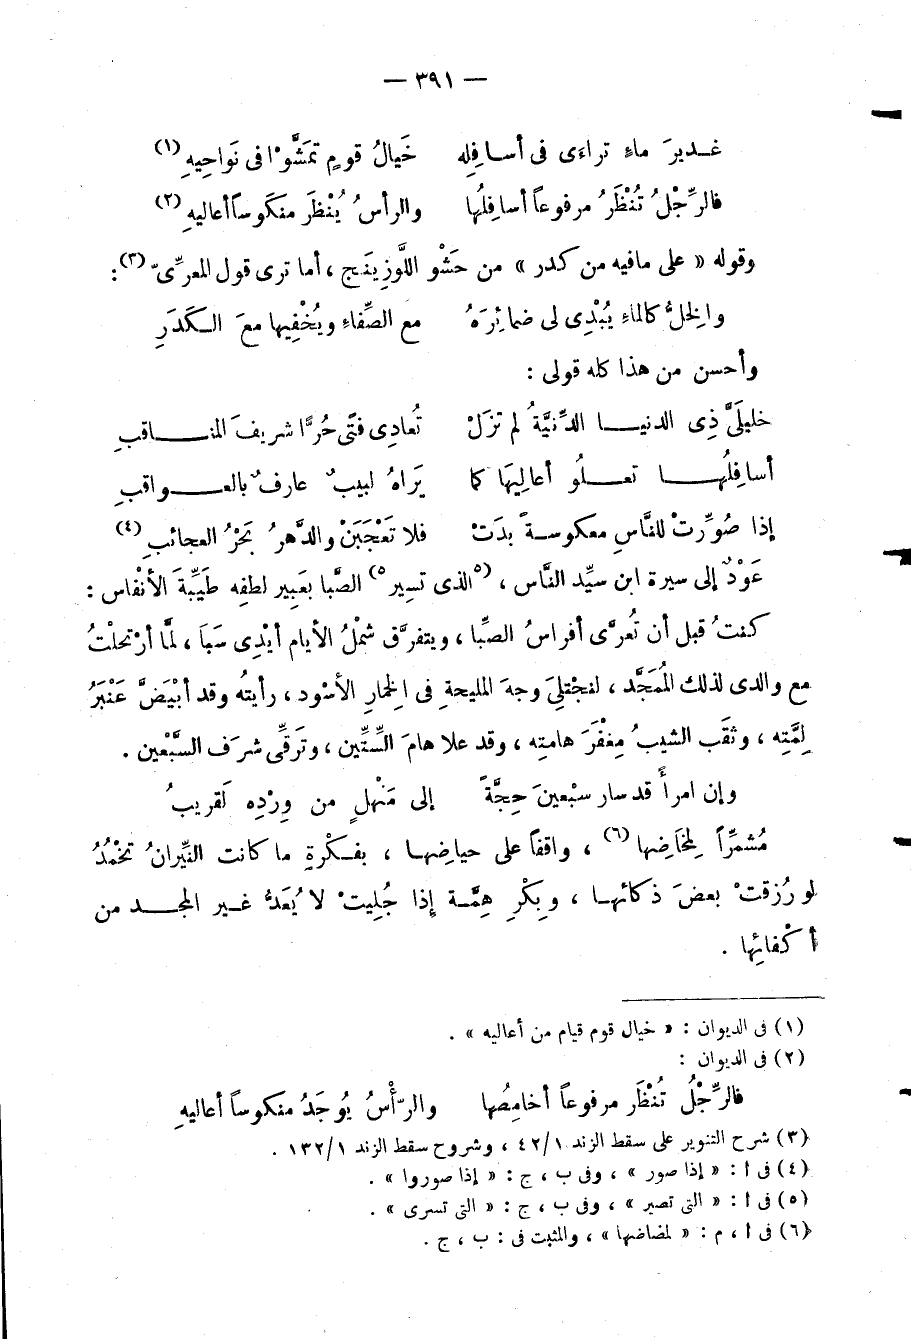 — ٣٩١ —
غـديرَ ماءٍ تراءَى فى أسـافِلِه خَيالُ قومٍ تمَشَّوْا فى نَواحِيهِ (١)
فالرِّجْلُ تُنْظَرُ مرفوعاً أسافِلُها والرأسُ يُنْظَرَ منكوساً أعاليهِ (٢)
وقوله « على مافيه من كدر » من حَشْو اللَّوزِينَج ، أما ترى قول المعرِّىّ (٣) :
والِخلُّ كالماءِ يُبْدِى لى ضمائِرَهُ مع الصِّفاءِ ويُخْفِيها معَ الـكَدَرِ
وأحسن من هذا كله قولى :
خليلَىَّ ذِى الدنيـا الدَّنِيَّةُ لم تزَلْ تُعادِى فتًى حُرًّا شريفَ المنـاقبِ
أسافِلُهـا تعـلُو أعالِيهَا كما يَراهُ لبيبٌ عارفٌ بالعـواقبِ
إذا صُوِّرتْ للنَّاسِ معكوسـةً بدَتْ فلا تَعْجَبَنْ والدَّهرُ بَحْرُ العجائبِ (٤)
عَوْدٌ إلى سيرة ابن سيِّد النَّاس ، (٥ الذى تسِير ٥) الصَّبا بعَبِير لطفِه طَيِّبةَ الأنْفاس :
كنتُ قبل أن تُعرَّى أفراسُ الصِّبا ، ويتفرَّق شملُ الأيام أيْدِى سَبَا ، لمَّا أرْتحلْتُ
مع والدى لذلك المُمَجَّد ، لنجْتلِىَ وجهَ المليحةِ فى الِخمارِ الأسْود ، رأيتهُ وقد أبْيَضَّ عَنْبَرُ
لِمَّتِه ، وثقَب الشيبُ مِغْفَرَ هامتِه ، وقد علا هامَ السِّتِّين ، وتَرقَّى شرَف السَّبْعين .
وإن امرأً قد سار سبْعينَ حِجَّةً إلى مَنْهلٍ من وِرْدِه لَقريبُ
مُشمِّراً لِمَخاضِها (٦) ، واقفاً على حياضِهـا ، بفـكْرةٍ ما كانت النِّيرانُ تَخْمُدُ
لو رُزقتْ بعضَ ذكائهـا ، وبِكْرِ هِمَّـة إذا جُلِيتْ لا يُعَدُّ غـير المجـد من
أكْفائِها .
(١) فى الديوان : « خيال قوم قيام من أعاليه » .
(٢) فى الديوان :
فالرِّجْلُ تُنْظَر مرفوعاً أخامِصُها والرّأْسُ يُوجَدُ منكوساً أعاليهِ
(٣) شرح التنوير على سقط الزند ٤٢/١ ، وشروح سقط الزند ١٣٢/١ .
(٤) فى أ : « إذا صور » ، وفى ب ، ج : « إذا صوروا » .
(٥) فى أ : « التى تصير » ، وفى ب ، ج : « التى تسرى » .
(٦) فى أ ، م : « لمضاضها » ، والمثبت فى : ب ، ج .